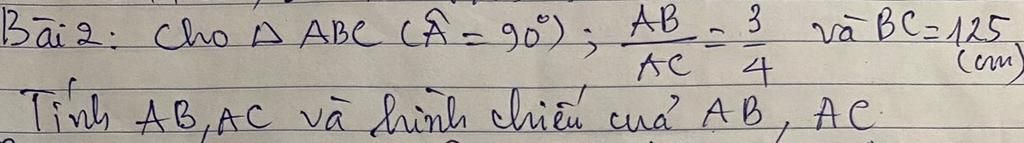 Bài 2: Cho Δ ABC (Â = 90°); AB/AC = 3/4 và BC = 125 (cm)
Tính AB, AC và hình chiếu của AB, AC.